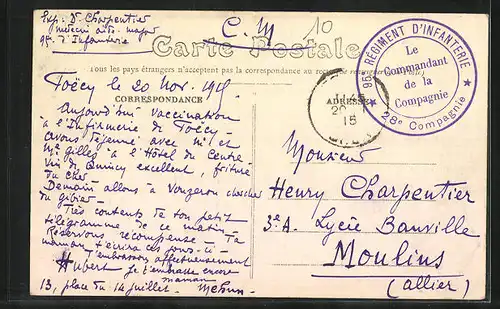 Exp: Dr Charpentier
médecin aide-major
95e d'Infanterie
C. M
10
Carte Postale
Tous les pays étrangers n'acceptent pas la correspondance au recto
CORRESPONDANCE
ADRESSE
95e RÉGIMENT D'INFANTERIE
Le
Commandant
de la
Compagnie
★ 28e Compagnie ★
20
15
Foëcy le 20 Nov. 1915
Aujourd'hui vaccination
à l'Infirmerie de Foëcy -
avons déjeuné avec Mr et
Me Gilles à l'Hôtel du Centre -
Vin de Quincy excellent, friture
du Cher
Demain allons à Vouzeron chercher
du gibier -
Très contents de ton petit
télégramme de ce matin.
Réservons récompense. Ta
maman t'écrira ces jours-ci -
t'embrassons affectueusement
Hubert je t'embrasse encore
maman
13, place du 14 juillet. Mehun
Monsieur
Henry Charpentier
3e A. Lycée Banville
Moulins
(Allier)